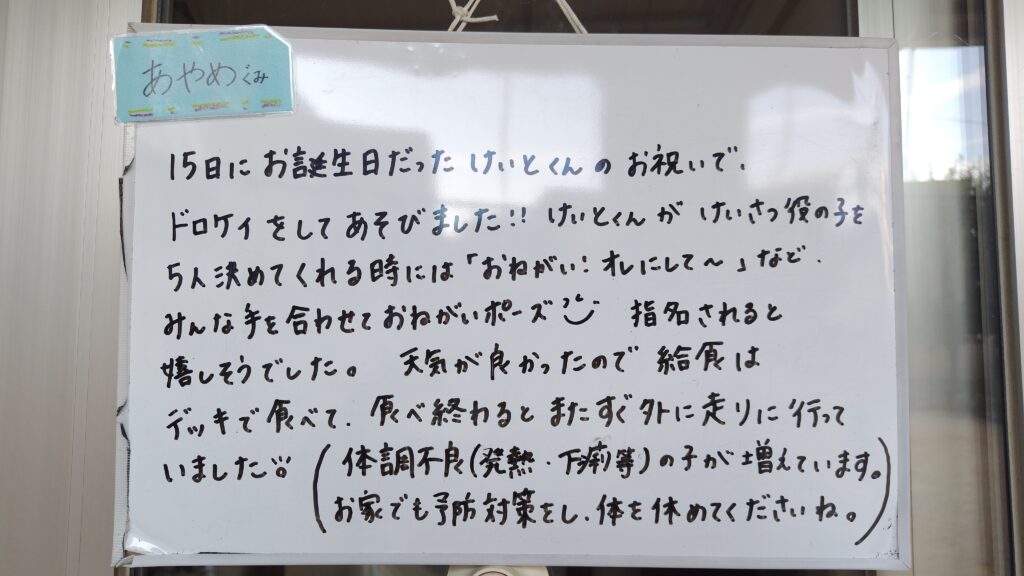 あやめぐみ
15日に お誕生日だった けいとくんの お祝いで、
ドロケイをして あそびました!! けいとくんが けいさつ役の子を
5人決めてくれる時には「おねがい!オレにして〜」など、
みんな手を合わせておねがいポーズ 指名されると
嬉しそうでした。 天気が良かったので 給食は
デッキで食べて、食べ終わると またすぐ外に走りに行って
いました (体調不良(発熱・下痢等)の子が増えています。
お家でも予防対策をし、体を休めてくださいね。)